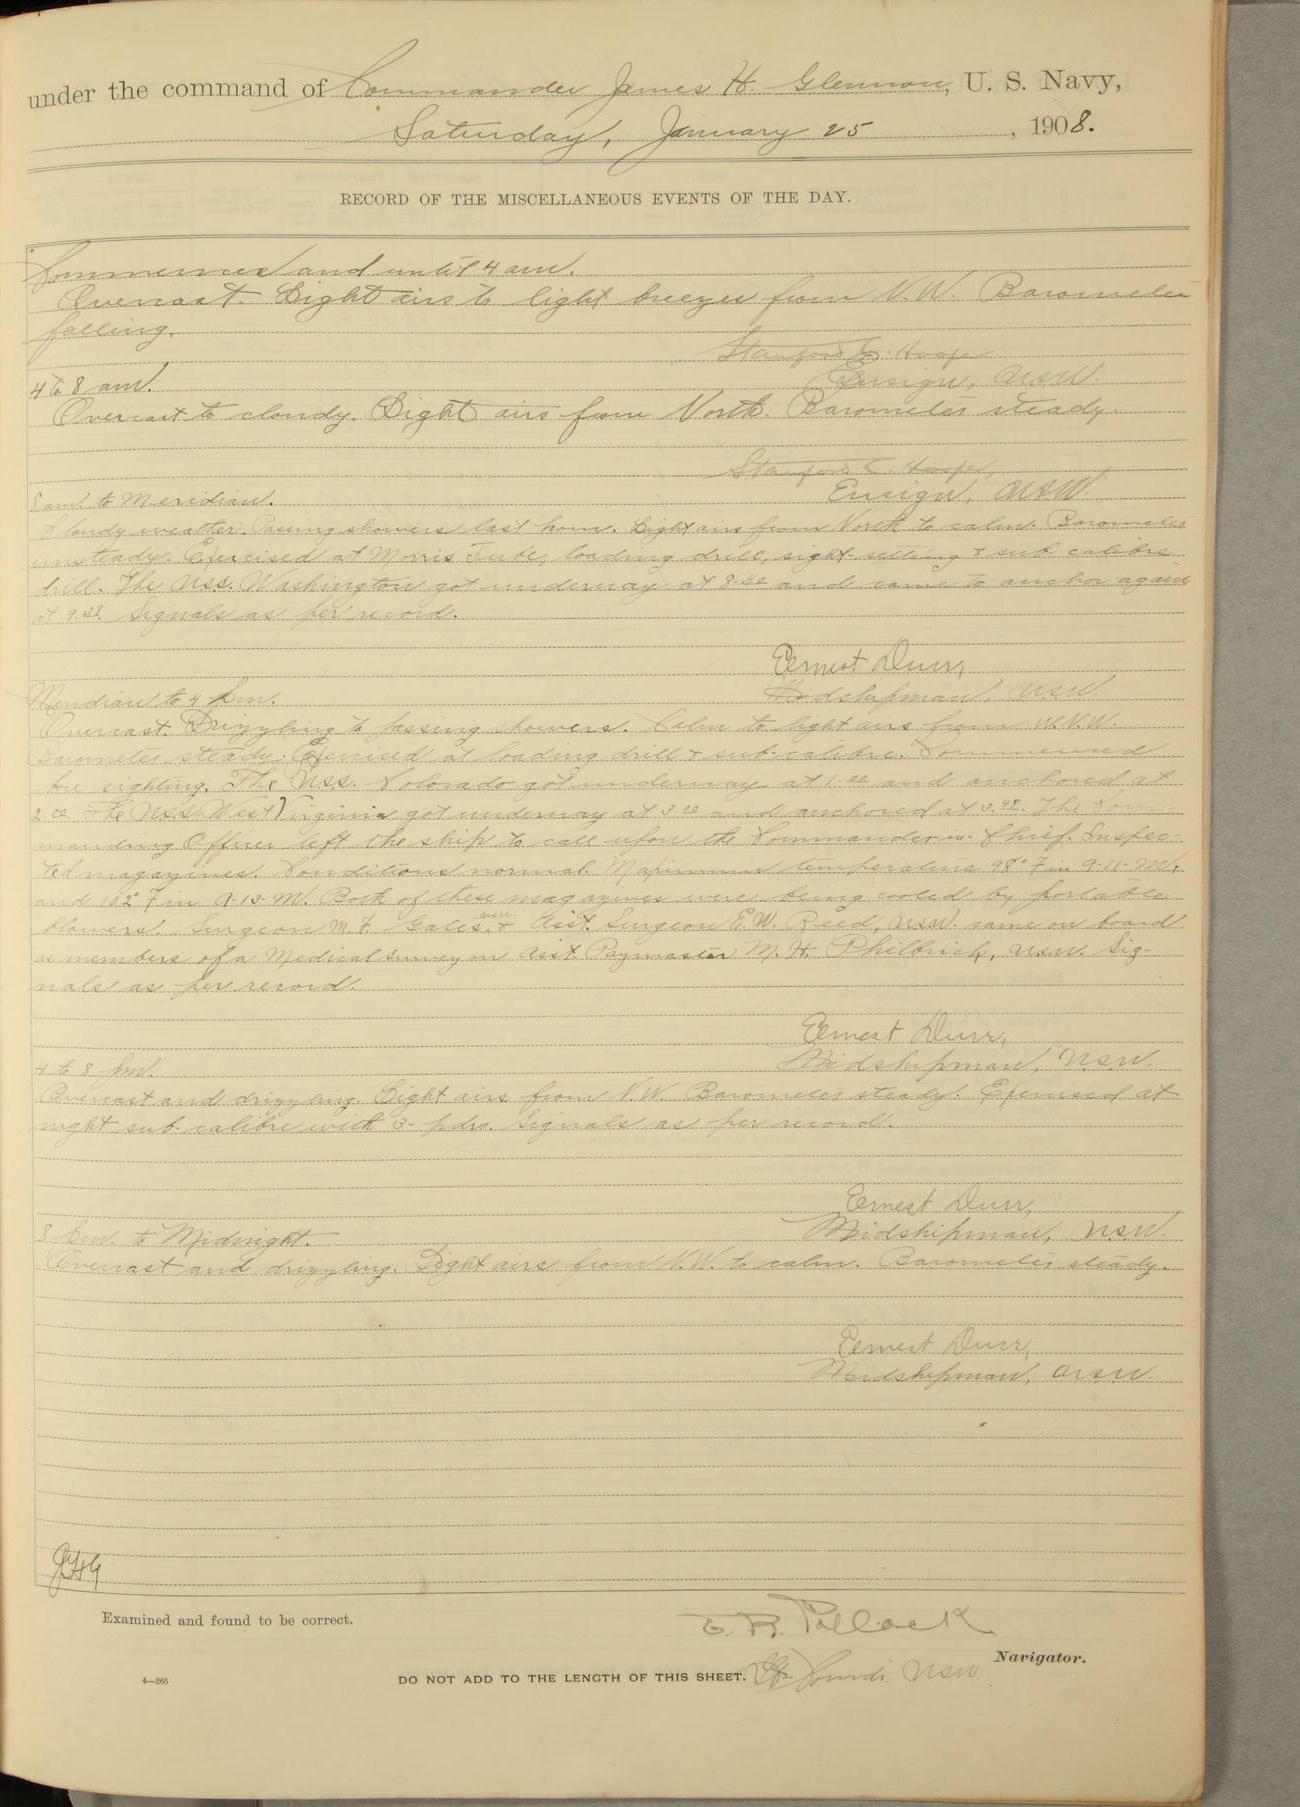 under the command of Commander James H. Glennon, U. S. Navy,
Saturday, January 25, 1908.
RECORD OF THE MISCELLANEOUS EVENTS OF THE DAY.
Commences and until 4 am.
Overcast. Light airs to light breezes from N.W. Barometer
falling.
Stanford C. Hooper
Ensign, USN.
4 to 8 am.
Overcast to cloudy. Light airs from North. Barometer steady.
Stanford C. Hooper,
Ensign, USN.
8 am. to Meridian.
Cloudy weather. Passing showers last hour. Light airs from North to calm. Barometer
unsteady. Exercised at Morris Tube, loading drill, sight-setting & sub calibre
drill. The USS. Washington got underway at 8. and came to anchor again
at 9. Signals as per record.
Ernest Durr,
Midshipman, USN.
Meridian to 4 Pm.
Overcast. Drizzling to passing showers. Calm to light airs from W.N.W.
Barometer steady. Exercised at loading drill & sub-calibre. Commenced
bore sighting. The USS. Colorado got underway at 1.00 and anchored at
2.00 The USS West Virginia got underway at 3.00 and anchored at 3.48. The Com-
manding Officer left the ship to call upon the Commander-in-Chief. Inspec-
ted magazines. Conditions normal. Maximum temperature 98° F in A-11-M,
and 102° F in A-15-M. Both of these magazines were being cooled by portable
blowers. Surgeon M. F. Gates, USN & Asst. Surgeon E. W. Reed, USN. came on board
as members of a Medical Survey on Asst. Paymaster M. H. Philbrick, USN. Sig-
nals as per record.
Ernest Durr,
Midshipman, USN.
4 to 8 Pm.
Overcast and drizzling. Light airs from N.W. Barometer steady. Exercised at
night sub calibre with 3-pdrs. Signals as per record.
Ernest Durr,
Midshipman, USN.
8 Pm. to Midnight.
Overcast and drizzling. Light airs from N.W. to calm. Barometer steady.
Ernest Durr,
Midshipman, USN.
JHG
Examined and found to be correct.
E. R. Pollock
Navigator.
4—265
DO NOT ADD TO THE LENGTH OF THIS SHEET.
Lt. Comdr. USN